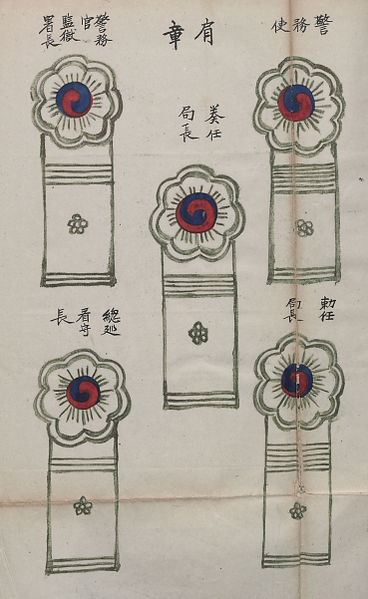 肩章
警務使
警務官
監獄
署長
奏任
局長
勅任
局長
總巡
看守
長